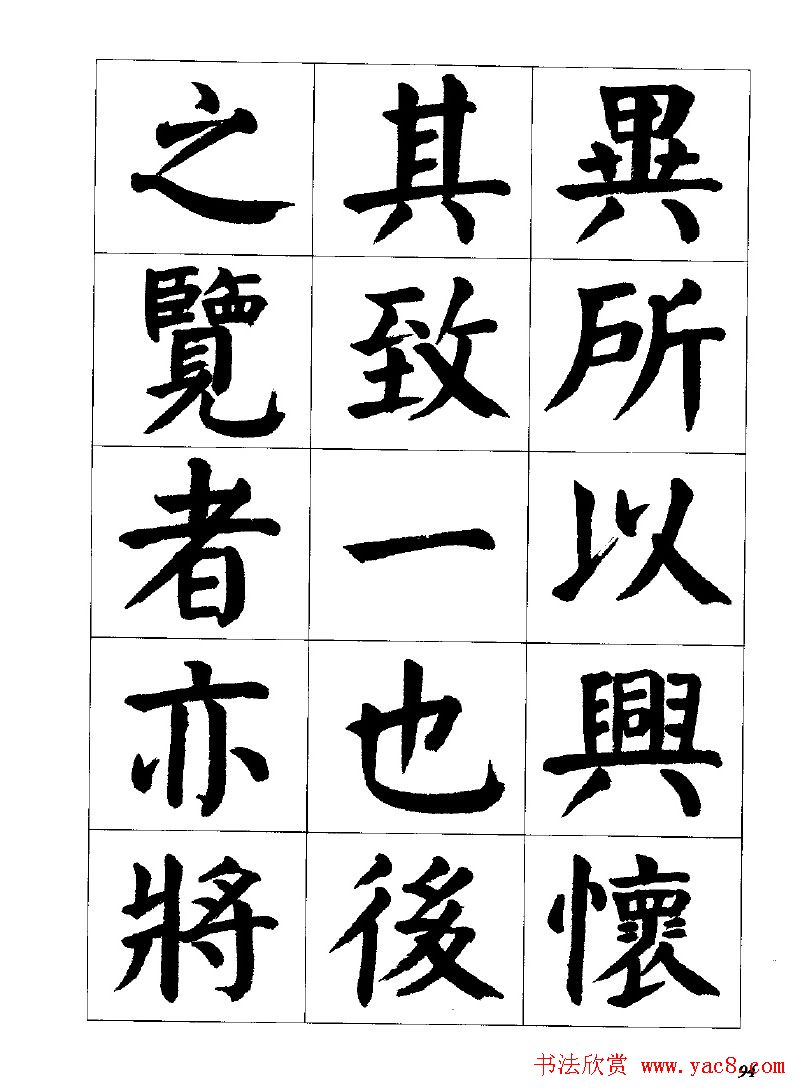 異所以興懷
其致一也後
之覽者亦將
书法欣赏 www.yac8.com
94